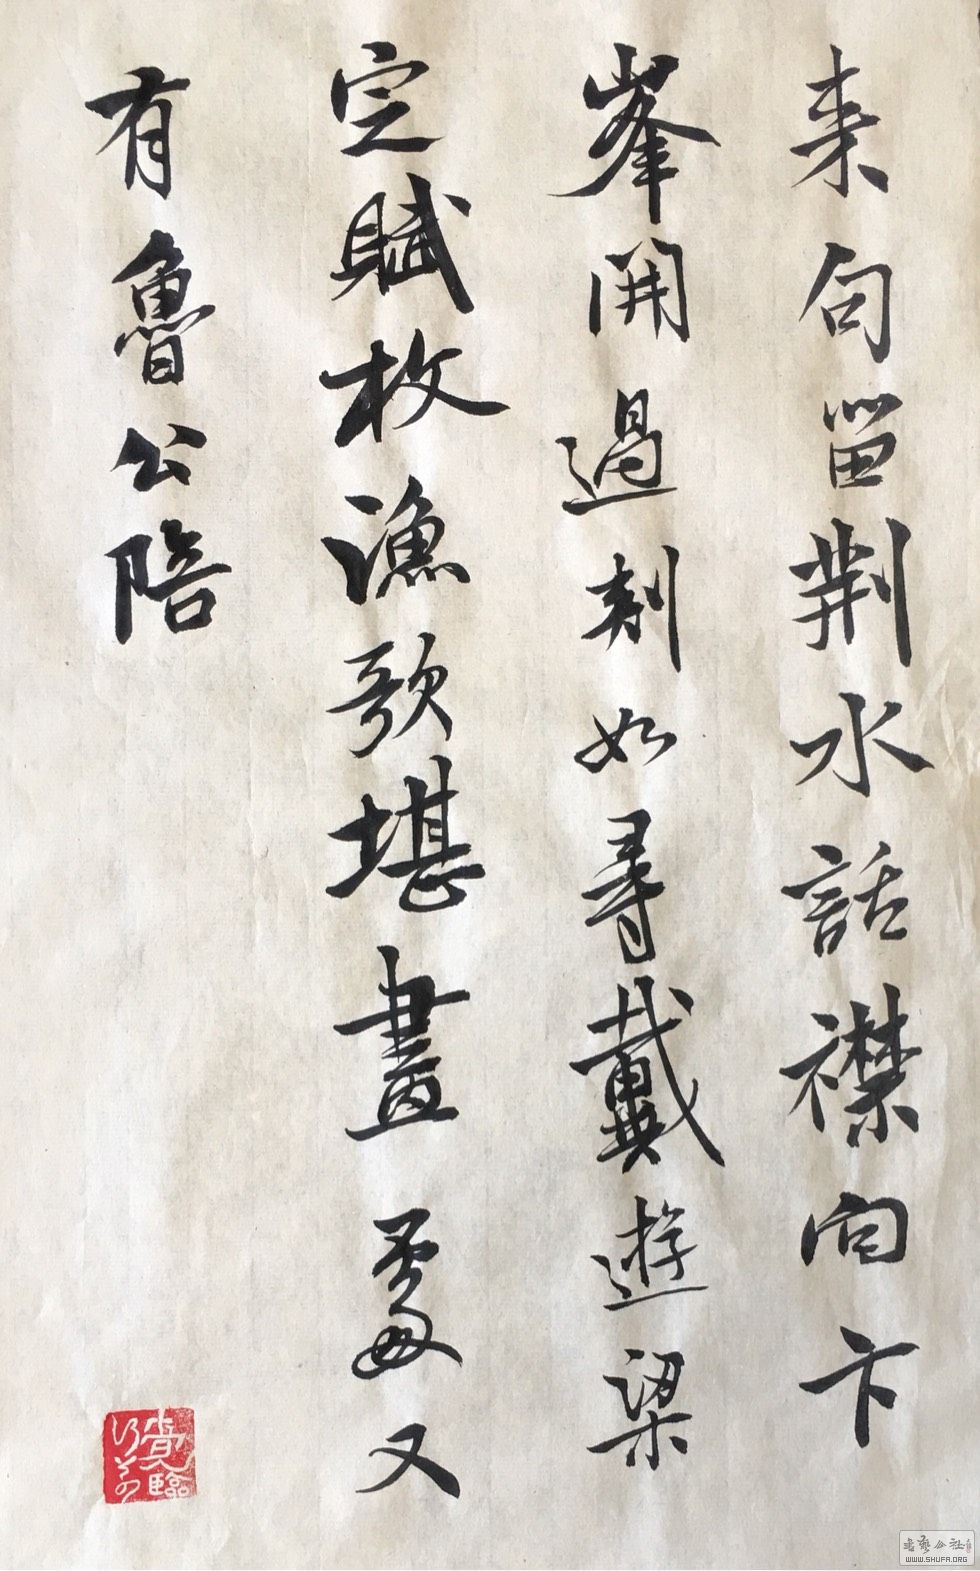 来句留荆水話襟向卞
峯開過剡如尋戴遊梁
定賦枚漁歌堪畫處又
有魯公陪
WWW.SHUFA.ORG